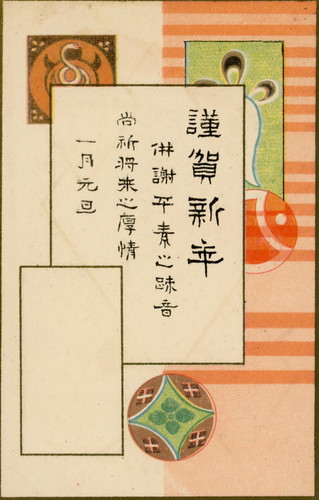 謹賀新年
併謝平素之踈音
尚祈将来之厚情
一月元旦